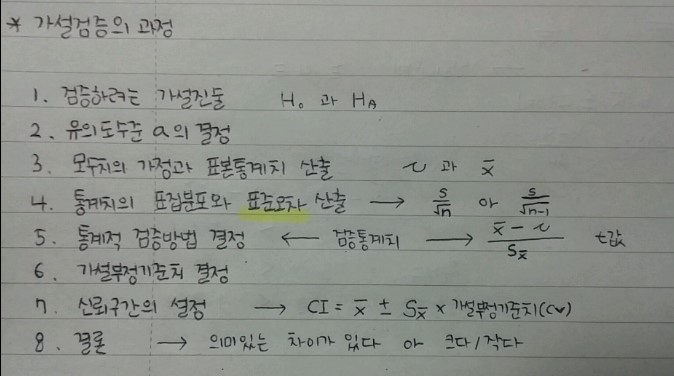 * 가설검증의 과정
1. 검증하려는 가설진술 H₀ 과 H_A
2. 유의도수준 α의 결정
3. 모수치의 가정과 표본통계치 산출 μ 과 x̄
4. 통계치의 표집분포와 표준오차 산출 → s/√n or s/√n-1
5. 통계적 검증방법 결정 ← 검증통계치 → (x̄ - μ)/S_x̄ t값
6. 가설부정기준치 결정
7. 신뢰구간의 설정 → CI = x̄ ± S_x̄ × 가설부정기준치(cv)
8. 결론 → 의미있는 차이가 있다 or 크다/작다